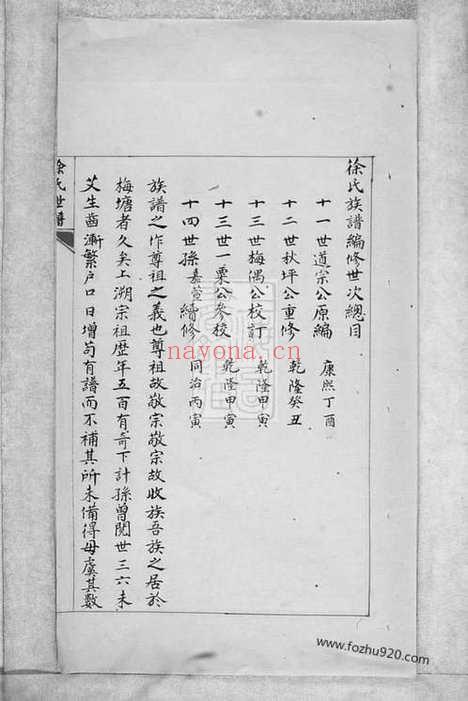 徐氏族譜編修世次總目
十一世道宗公原編 康熙丁酉
十二世秋坪公重修 乾隆癸丑
十三世梅偶公校訂 乾隆甲寅
十三世一粟公參校 乾隆甲寅
十四世孫嘉萱續修 同治丙寅
族譜之作尊祖之義也尊祖故敬宗敬宗故收族吾族之居於
梅塘者久矣上溯宗祖歴年五百有奇下計孫曾閱世三六未
艾生齒漸繁户口日增苟有譜而不補其所未備得毋虞其數
徐氏世譜
nayona.cn
www.fozhu920.com